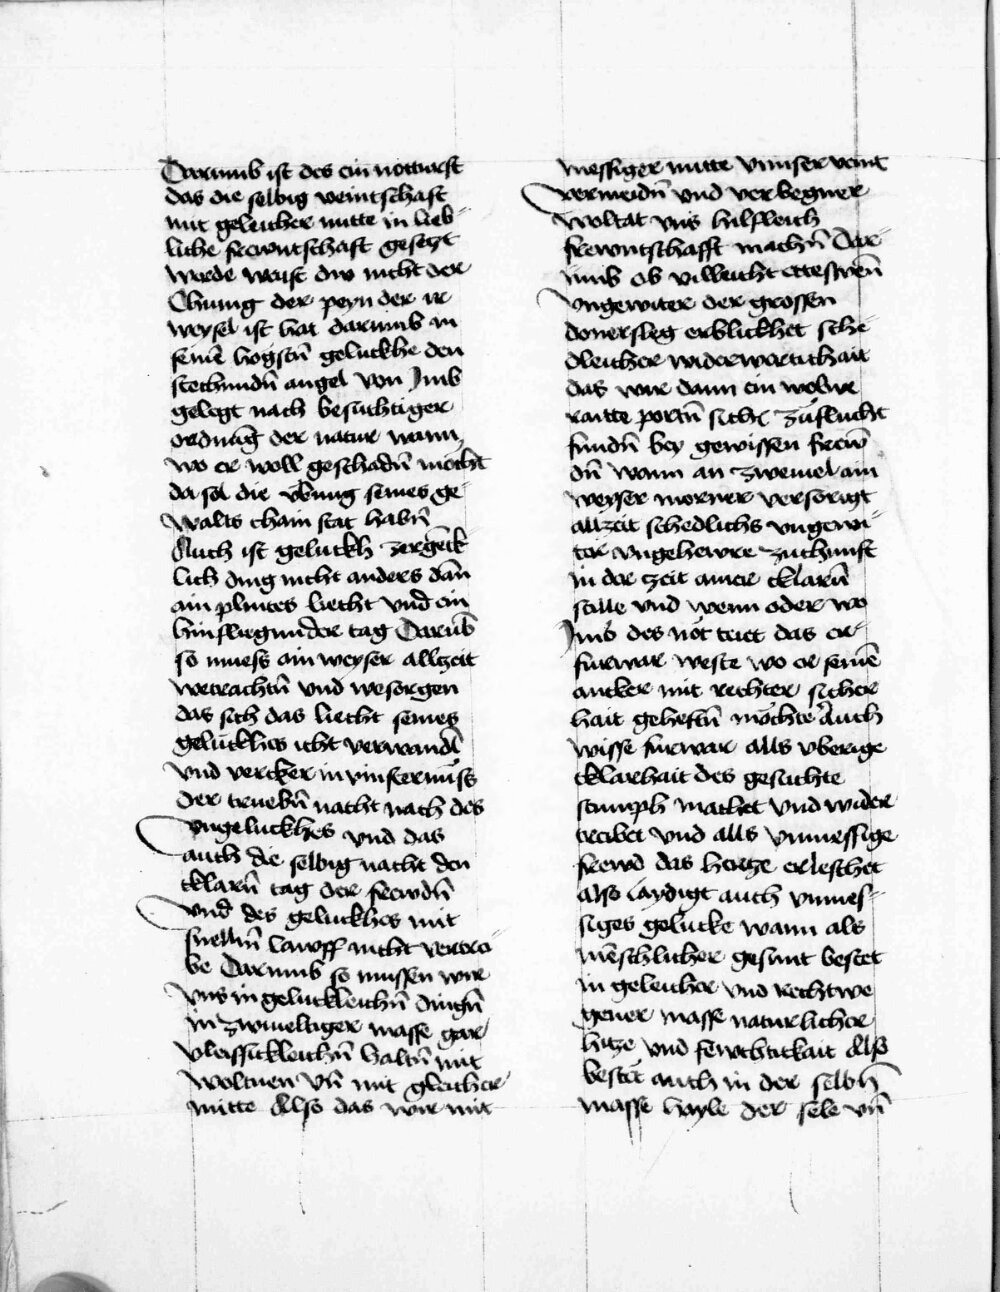 Darumb ist des ein notturft
das die selbig veintschaft
mit geleicher mitte in lieb
liche frewntschaft gesetzt
werde waist dw nicht der
Chunig der peyn der ir
weysel ist hat darumb in
seinē hogstn̄ geluckhe den
stechundn̄ angel von Jmb
gelegt nach besichtiger
ordnūg der natur wann
wo er woll geschadn̄ möcht
da sol die vbung seines ge
walts chain stat habn̄
Auch ist geluckh zergēk
lich ding nicht anders dan̄
ain plintes liecht vnd ein
hinfliegunder tag Darūb
so muess ain weyser allczeit
wetrachtn̄ vnd wesorgen
das sich das liecht seines
geluckhes icht verwandl
vnd vercker in vinsternuss
der truebn̄ nacht nach des
vngeluckhes vnd das
auch die selbig nacht den
cklarn̄ tag der frewdn̄
vnd des geluckhes mit
snellm̄ lawff nicht vertrei
be Darumb so mussen wir
vns in geluckleichn̄ dingn̄
in zwiueltiger masse gar
vleissickleichn̄ haltn̄ mit
woltuen vn̄ mit gleicher
mitte Also das wir mit
messiger mitte vnnser veint
vermeidn̄ vnd ver begner
woltat vns hilfleich
frewntschafft machn̄ Dar
umb ob villeicht etteswen̄
vngewiter der grossen
donersleg erblickhet sche
dleicher widerwertichait
das wir dann ein wolue
raitte portn̄ sich zuflucht
fundn̄ bey gewissen frewn̄
dn̄ Wann an zweiuel ain
weyser morner versorigt
allzeit schedlichs vngewi
ter vngehewre zuchunft
in der czeit ainer cklarn̄
stille vnd wenn oder wo
Jmb des not teiet das er
furwar weste wo er seinē
ancker mit rechter sicher
hait geheftn̄ möchte Auch
wisse furwar alls vberige
cklarhait des gesichte
stumph machet vnd wider
treibet vnd alls vnmessige
frewd das hertze erleschet
Also laydigt auch vnmes
siges gelucke wann als
mēschlicher gesunt bestet
in geleicher vnd rechtwe
gener masse naturlicher
hitze vnd fewchtickait Also
bestet auch in der selbn̄
masse hayle der sele vn̄